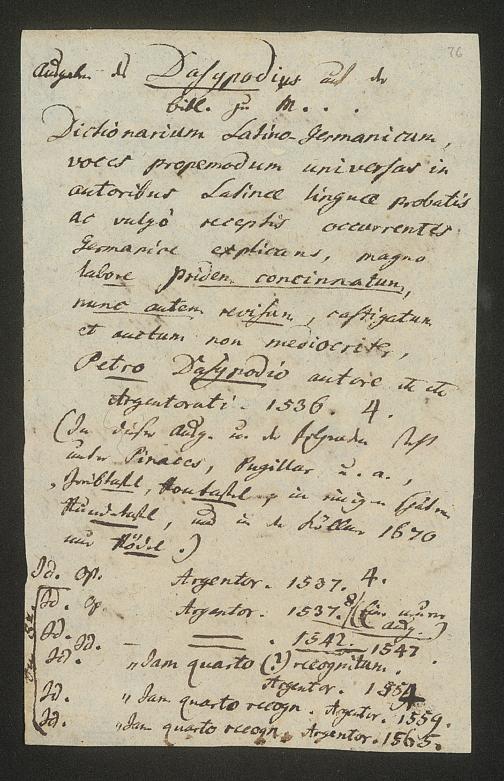 76
Ausgaben des Dasypodius auf der
Bibl. zu M...
Dictionarium Latino-Germanicum,
voces propemodum universas in
autoribus Latinae linguae probatis
ac vulgo receptis occurrentes
Germanice explicans, magno
labore pridem concinnatum,
nunc autem revisum, castigatum
et auctum non mediocriter,
Petro Dasypodio autore etc etc
Argentorati. 1536. 4.
(In dieser Ausg. u. der folgenden steht
unter Pinaces, Pugillar u. a.,
in einigen
, und in der 1670
nur .)
Id. op. Argentor. 1537. 4.
Id. op. Argentor. 1537. 8 (
Ausg.)
Id. — 1542. 1547.
Id. Id. „Jam quarto (?) recognitum.
Argentor. 1554.
Id. „Jam quarto recogn. Argentor. 1559.
Id. „Jam quarto recogn. Argentor. 1565.